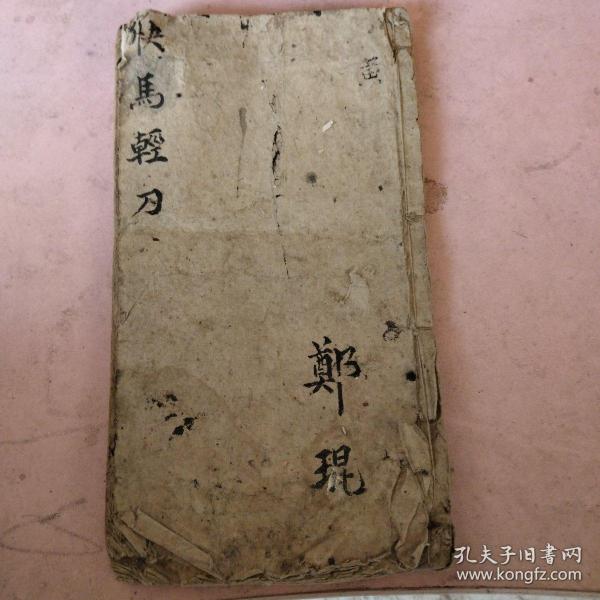 快馬輕刀
鄭琨
孔夫子旧書网
www.kongfz.com